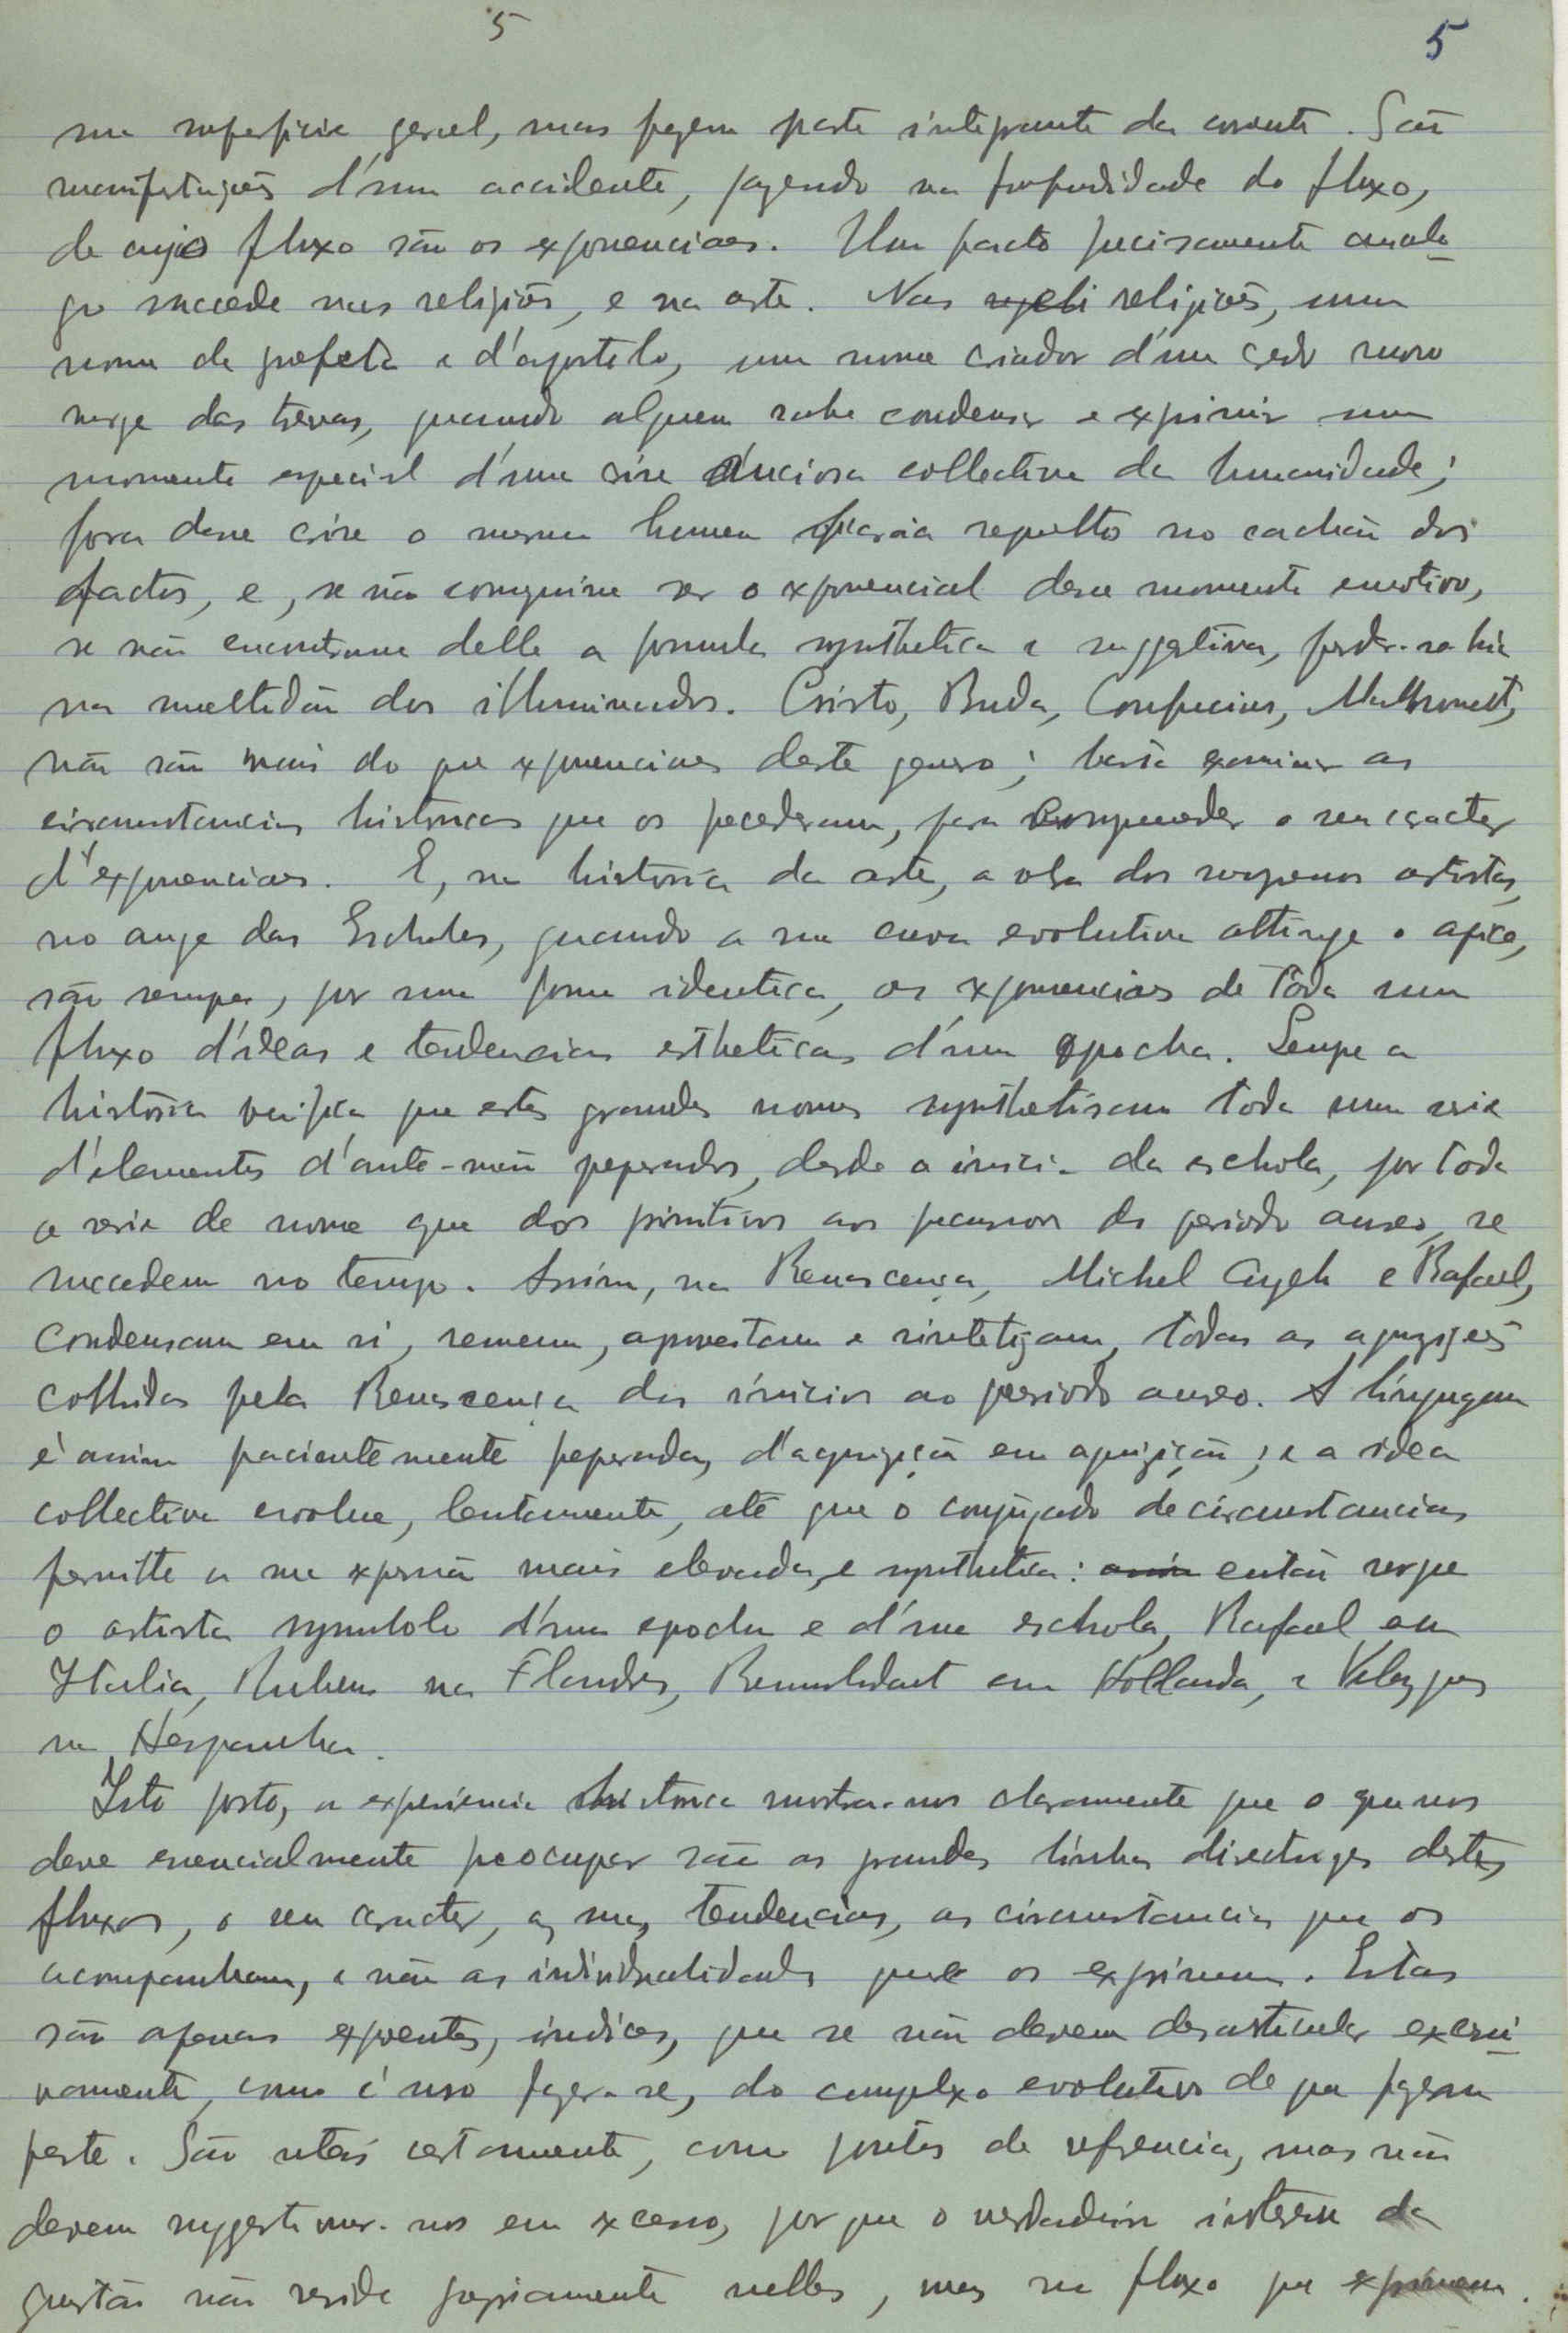 5 5
na superficie geral, mas fazem parte integrante da corrente. São
manifestações d'um accidente, jazendo na profundidade do fluxo,
de cujo fluxo são os exponenciaes. Um facto precisamente analo-
go succede nas religiões, e na arte. Nas reli religiões, um
nome de profeta e d'apostolo, um nome criador d'um credo novo
surge das trevas, quando alguem sabe condensar e exprimir um
momento especial d'uma crise anciosa collectiva da humanidade;
fora desse crise o mesmo homem ficaria sepulto no cachão dos
factos, e, se não conseguisse ser o exponencial desse momento emotivo,
se não encontrasse delle a formula synthetica e suggestiva, perder-se-hia
na multidão dos illuminados. Cristo, Buda, Confucius, Mathomet,
não são mais do que exponenciaes deste genero; basta examinar as
circumstancias historicas que os precederam, para comprehender o seu caracter
d'exponenciaes. E, na historia da arte, a obra dos supremos artistas,
no auge das Escholas, quando a sua curva evolutiva attinge o apice,
são sempre, por uma forma identica, os exponenciaes de toda um
fluxo d'ideas e tendencias estheticas d'uma epocha. Sempre a
historia verifica que estes grandes nomes synthetisam toda uma serie
d'elementos d'ante-mão preparados, desde o inicio da eschola, por toda
a serie de nomes que dos primitivos aos precursores do periodo aureo, se
succedem no tempo. Assim, na Renascença, Michel Angelo e Rafael,
condensam em si, resumem, aproveitam e sintetizam, todas as aquizições
colhidas pela Renascença dos inicios ao periodo aureo. A linguagem
é assim pacientemente preparada, d'aquizição em aquizição; e a idea
collectiva evolue, lentamente, até que o conjugado de circunstancias
permitte a sua expressão mais elevada e synthetica: assim então surge
o artista symbolo d'uma epocha e d'uma eschola, Rafael em
Italia, Rubens na Flandres, Rembrandt em Hollanda, e Velazques
na Hespanha.
Isto posto, a experiencia historica mostra-nos claramente que o que nos
deve essencialmente preocupar são as grandes linhas directrizes destes
fluxos, o seu caracter, as suas tendencias, as circumstancias que os
acompanham, e não as individualidades que os exprimem. Estas
são apenas expoentes, indices, que se não devem desarticular excessi-
vamente, como é uso fazer-se, do complexo evolutivo de que fazem
parte. São uteis certamente, como pontos de referencia, mas não
devem suggestionar-nos em excesso, por que o verdadeiro interesse da
questão não reside propriamente nelles, mas no fluxo que exprimem.